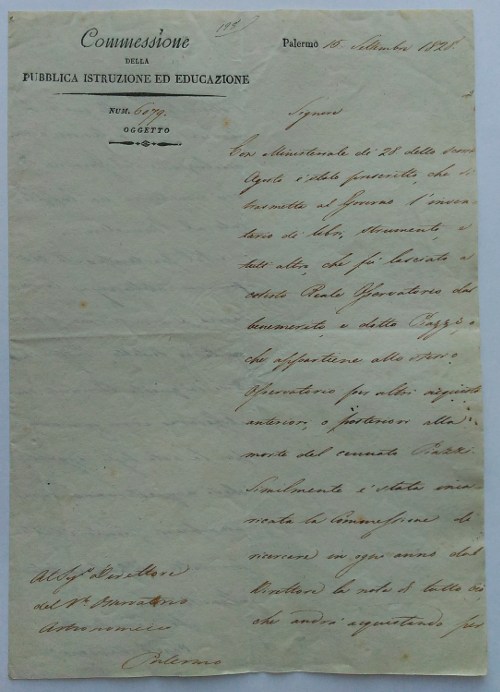 195
Commessione
DELLA
PUBBLICA ISTRUZIONE ED EDUCAZIONE
NUM. 6079.
OGGETTO
Palermo 15 Settembre 1828
Signore
Con Ministeriale di 28 dello scorso
Agosto è stato prescritto, che si
trasmetta al Governo l'inven-
tario di libri, strumenti, e
tutt'altro, che fù lasciato a
cotesto Reale Osservatorio dal
benemerito, e dotto Piazzi, o
che appartiene allo stesso
Osservatorio per altri acquisti
anteriori, o posteriori alla
morte del cennato Piazzi.
Similmente è stata inca-
ricata la Commessione di
ricercare in ogni anno dal
Direttore la nota di tutto ciò
che andrà acquistando per
Al Sig.r Direttore
del R.e Osservatorio
Astronomico
Palermo